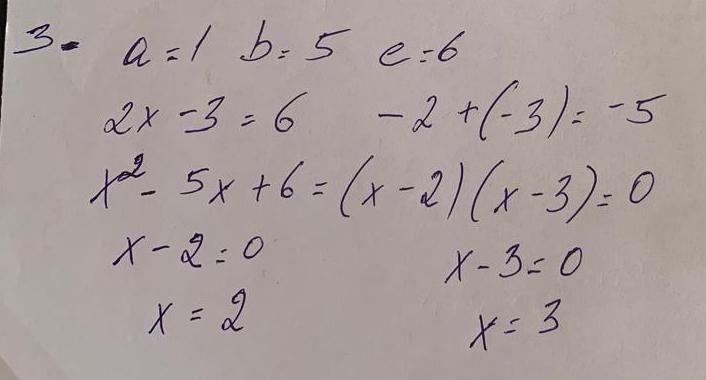 3. a=1 b=5 c=6
2x-3=6 -2+(-3)=-5
x²-5x+6=(x-2)(x-3)=0
x-2=0 x-3=0
x=2 x=3